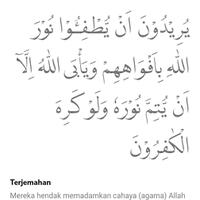 يُرِيْدُوْنَ اَنْ يُّطْفِـُٔوْا نُوْرَ
اللّٰهِ بِاَفْوَاهِهِمْ وَيَأْبَى اللّٰهُ اِلَّآ
اَنْ يُّتِمَّ نُوْرَهٗ وَلَوْ كَرِهَ
الْكٰفِرُوْنَ
Terjemahan
Mereka hendak memadamkan cahaya (agama) Allah